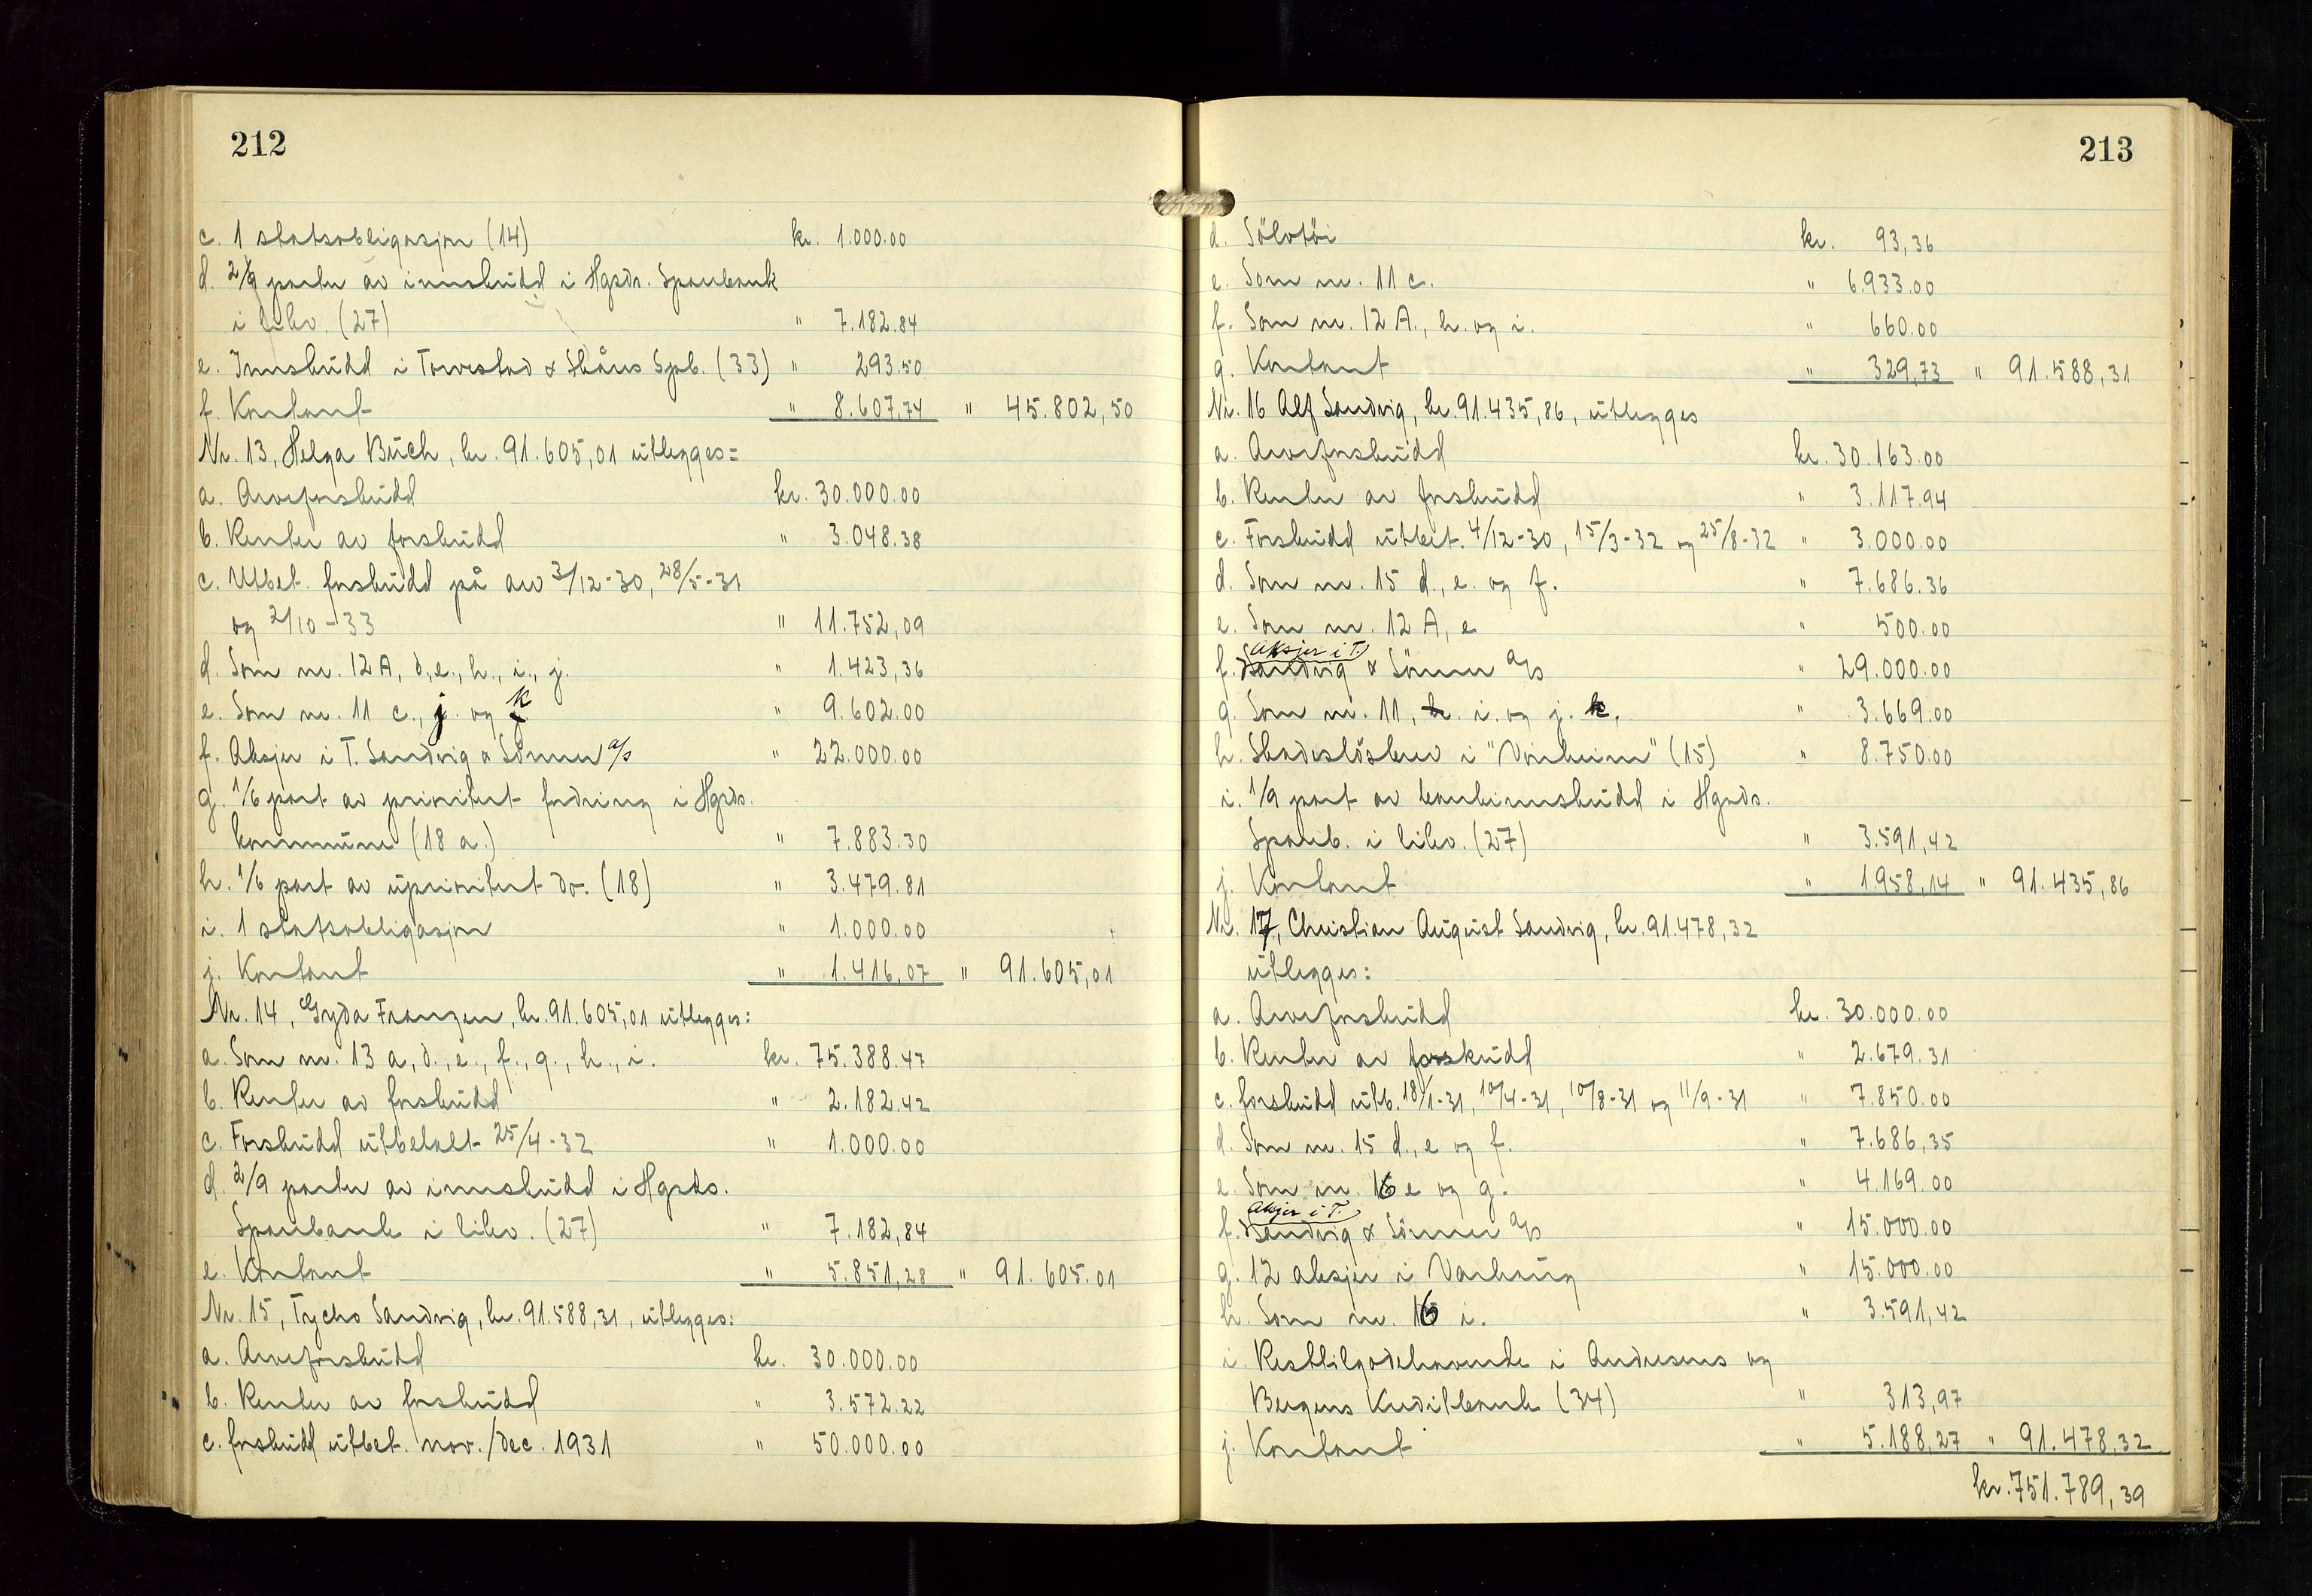 212
c. 1 statsobligasjon (14) kr. 1.000.00
d. 2/9 parter av innskudd i Hgsds. Sparebank
i likv. (27) " 7.182.84
e. Innskudd i Torvestad & Skåres Spb. (33) " 293.50
f. Kontant " 8.607,74 " 45.802,50
Nr. 13, Helga Büch, kr. 91.605,01 utlegges=
a. Arveforskudd kr. 30.000.00
b. Renter av forskudd " 3.048.38
c. Utbet. forskudd på arv 3/12-30, 28/5-31
og 2/10-33 " 11.752,09
d. Som nr. 12A, d,e., h., i., j. " 1.423,36
e. Som nr. 11 c., j. og k " 9.602.00
f. Aksjer i T. Sandvig & Sönner a/s " 22.000.00
g. 1/6 part av prioritert fordring i Hgsds.
kommune (18 a.) " 7.883.30
h. 1/6 part av uprioritert do. (18) " 3.479.81
i. 1 statsobligasjon " 1.000.00
j. Kontant " 1.416,07 " 91.605,01
Nr. 14, Gyda Franzen, kr. 91.605,01 utlegges:
a. Som nr. 13 a, d., e., f., g., h., i. kr. 75.388.47
b. Renter av forskudd " 2.182.42
c. Forskudd utbetalt 25/4-32 " 1.000.00
d. 2/9 parter av innskudd i Hgsds.
Sparebank i likv. (27) " 7.182,84
e. Kontant " 5.851,28 " 91.605.01
Nr. 15, Tycho Sandvig, kr. 91.588,31, utlegges:
a. Arveforskudd kr. 30.000.00
b. Renter av forskudd " 3.572.22
c. forskudd utbet. nov./dec. 1931 " 50.000.00
213
d. Sölvtöi kr. 93,36
e. Som nr. 11 c. " 6.933.00
f. Som nr. 12 A., h. og i. " 660.00
g. Kontant " 329,73 " 91.588,31
Nr. 16 Alf Sandvig, kr. 91.435,86, utlegges
a. Arveforskudd kr. 30.163.00
b. Renter av forskudd " 3.117.94
c. Forskudd utbet. 4/12-30, 15/3-32 og 25/8-32 " 3.000.00
d. Som nr. 15 d., e. og f. " 7.686.36
e. Som nr. 12 A, e " 500.00
Aksjer i T.
f. Sandvig & Sönner a/s " 29.000.00
g. Som nr. 11, h. i. og j. k. " 3.669.00
h. Skadeslösbrev i "Vonheim" (15) " 8.750.00
i. 1/9 part av bankinnskudd i Hgsds.
Spareb. i likv. (27) " 3.591,42
j. Kontant " 1.958,14 " 91.435,86
Nr. 17, Christian August Sandvig, kr. 91.478,32
utlegges:
a. Arveforskudd kr. 30.000.00
b. Renter av forskudd " 2.679.31
c. forskudd utb. 18/1-31, 10/4-31, 10/8-31 og 11/9-31 " 7.850.00
d. Som nr. 15 d., e og f. " 7.686,35
e. Som nr. 16 e og g. " 4.169.00
Aksjer i T.
f. Sandvig & Sönner a/s " 15.000.00
g. 12 aksjer i Varberg " 15.000.00
h. Som nr. 16 i. " 3.591,42
i. Resttilgodehavende i Andresens og
Bergens Kreditbank (34) " 313,97
j. Kontant " 5.188,27 " 91.478,32
kr. 751.789,39